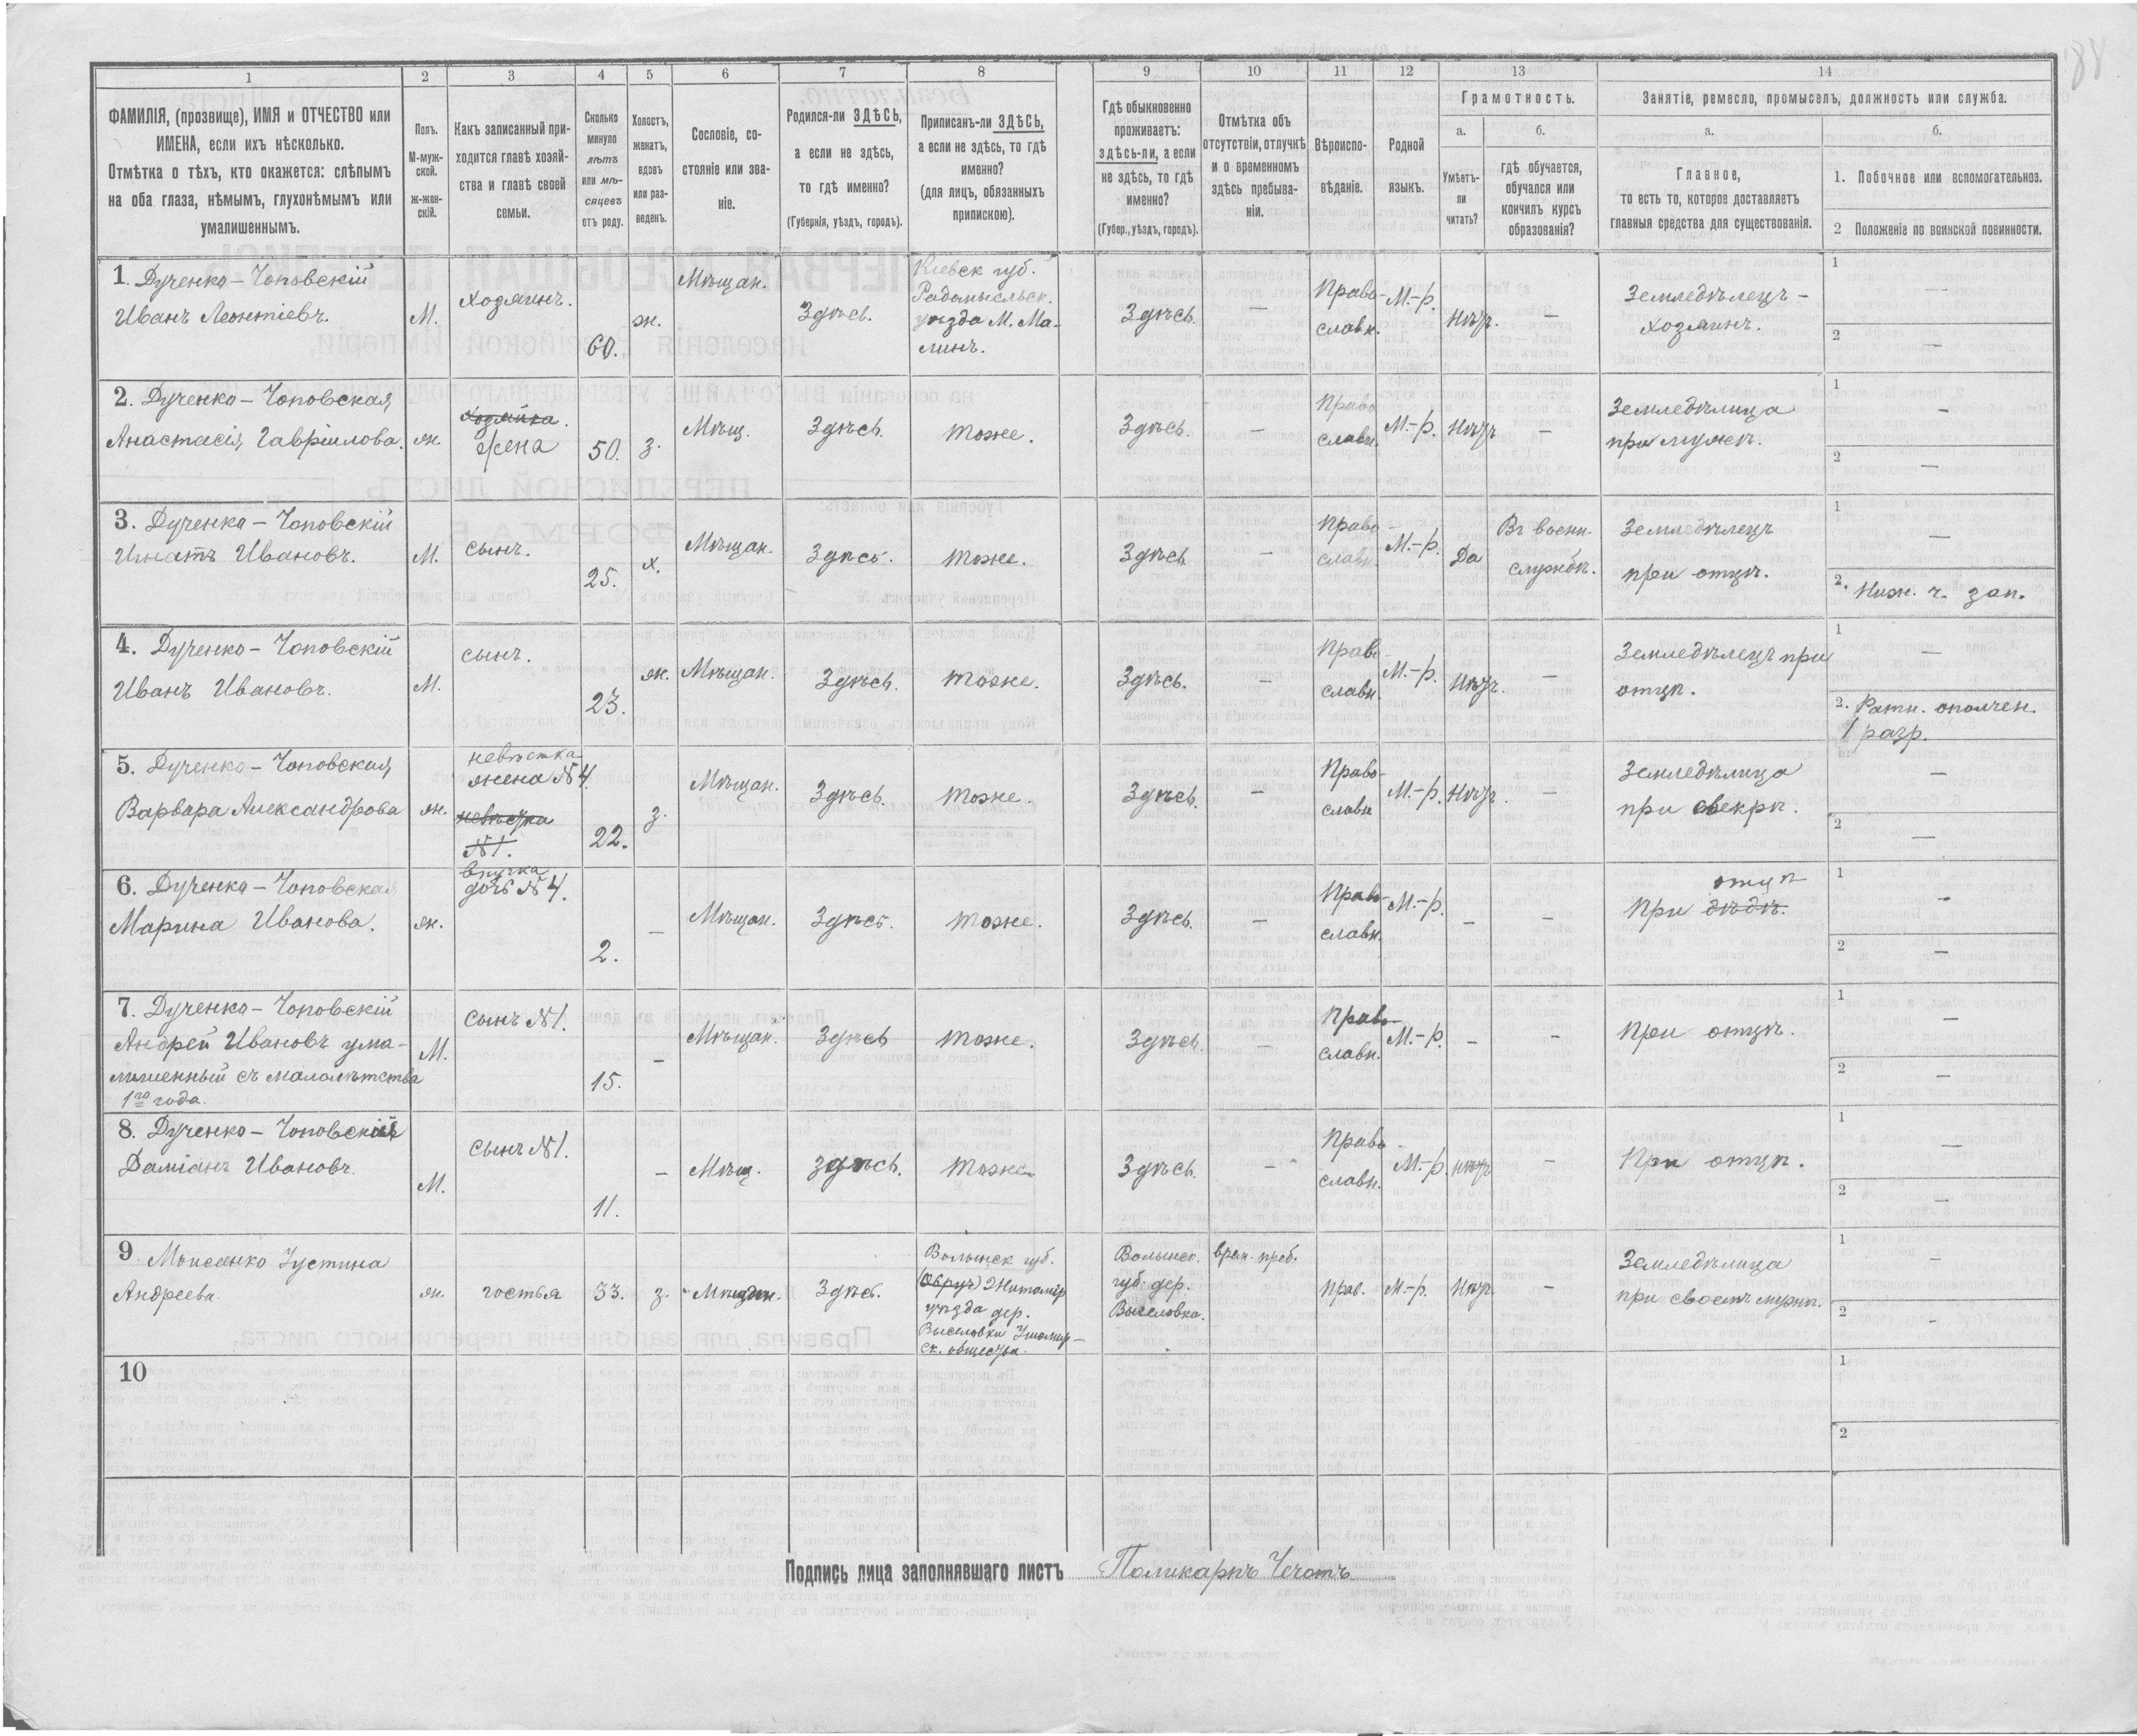 1
2
3
4
5
6
7
8
9
10
11
12
13
14
ФАМИЛІЯ, (прозвище), ИМЯ и ОТЧЕСТВО или
ИМЕНА, если ихъ нѣсколько.
Отмѣтка о тѣхъ, кто окажется: слѣпымъ
на оба глаза, нѣмымъ, глухонѣмымъ или
умалишеннымъ.
Полъ.
М-муж-
ской.
ж-жен-
скій.
Какъ записанный при-
ходится главѣ хозяй-
ства и главѣ своей
семьи.
Сколько
минуло
лѣтъ
или мѣ-
сяцевъ
отъ роду.
Холостъ,
женатъ,
вдовъ
или раз-
веденъ.
Сословіе, со-
стояніе или зва-
ніе.
Родился-ли ЗДѢСЬ,
а если не здѣсь,
то гдѣ именно?
(Губернія, уѣздъ, городъ).
Приписанъ-ли ЗДѢСЬ,
а если не здѣсь, то гдѣ
именно?
(для лицъ, обязанныхъ
припискою).
Гдѣ обыкновенно
проживаетъ:
здѣсь-ли, а если
не здѣсь, то гдѣ
именно?
(Губер., уѣздъ, городъ).
Отмѣтка объ
отсутствіи, отлучкѣ
и о временномъ
здѣсь пребыва-
ніи.
Вѣроиспо-
вѣданіе.
Родной
языкъ.
Грамотность.
а.
Умѣетъ-
ли
читать?
б.
гдѣ обучается,
обучался или
кончилъ курсъ
образованія?
Занятіе, ремесло, промыселъ, должность или служба.
а.
Главное,
то есть то, которое доставляетъ
главныя средства для существованія.
б.
1. Побочное или вспомогательное.
2 Положеніе по воинской повинности.
1. Дученко-Чоповскій
Иванъ Леонтіевъ.
М.
Хозяинъ.
60.
ж.
Мѣщан.
Здѣсь.
Кіевск губ.
Радомысльск.
уѣзда М. Ма-
линъ.
Здѣсь.
—
Право-
славн.
М.-р.
Нѣтъ.
—
Земледѣлецъ -
хозяинъ.
1 —
2 —
2. Дученко-Чоповская
Анастасія Гавріилова.
ж.
хозяйка.
жена
50.
з.
Мѣщ.
Здѣсь.
тоже.
Здѣсь.
—
Право
славн.
М.-р.
Нѣтъ
—
Земледѣлица
при мужѣ.
1 —
2 —
3. Дученко-Чоповскій
Игнатъ Ивановъ.
М.
сынъ.
25.
х.
Мѣщан.
Здѣсь.
тоже.
Здѣсь
—
Право-
славн.
М.-р.
Да
Въ военн.
службѣ.
Земледѣлецъ
при отцѣ.
1 —
2. Нижн. ч. зап.
4. Дученко-Чоповскій
Иванъ Ивановъ.
М.
сынъ.
23.
ж.
Мѣщан.
Здѣсь.
тоже.
Здѣсь.
—
Право-
славн.
М.-р.
Нѣтъ.
—
Земледѣлецъ при
отцѣ.
1 —
2. Ратн. ополчен.
1 разр.
5. Дученко-Чоповская
Варвара Александрова
ж.
невѣстка
жена №4.
невѣстка
№1.
22.
з.
Мѣщан.
Здѣсь.
тоже.
Здѣсь.
—
Право-
славн
М.-р.
Нѣтъ.
—
Земледѣлица
при свекрѣ.
1 —
2 —
6. Дученко-Чоповская
Марина Иванова.
ж.
внучка
дочь №4.
2.
—
Мѣщан.
Здѣсь.
тоже.
Здѣсь.
—
Право-
славн.
М.-р.
—
—
отцѣ
При дѣдѣ.
1 -
2 —
7. Дученко-Чоповскій
Андрей Ивановъ ума-
лишенный съ малолѣтства
1го года.
М.
сынъ №1.
15.
—
Мѣщан.
Здѣсь
тоже.
Здѣсь.
—
Право-
славн.
М.-р.
-
-
При отцѣ.
1 —
2 —
8. Дученко-Чоповскій
Даміанъ Ивановъ.
М.
сынъ №1.
11.
—
Мѣщ.
здѣсь.
тоже.
Здѣсь.
—
Право-
славн.
М.-р.
нѣтъ
—
При отцѣ.
1 —
2 —
9. Моисеенко Іустина
Андреева.
ж.
гостья
33.
з.
Мѣщан.
Здѣсь.
Волынск губ.
(Овруч) Житомір
уѣзда дер.
Выселовки Ушомір-
ск. общества.
Волынск.
губ. дер.
Выселовка.
врем. преб.
Прав.
М.-р.
Нѣтъ.
—
Земледѣлица
при своемъ мужѣ.
1 —
2 -
10
1
2
Подпись лица заполнявшаго листъ Поликарпъ Чечотъ